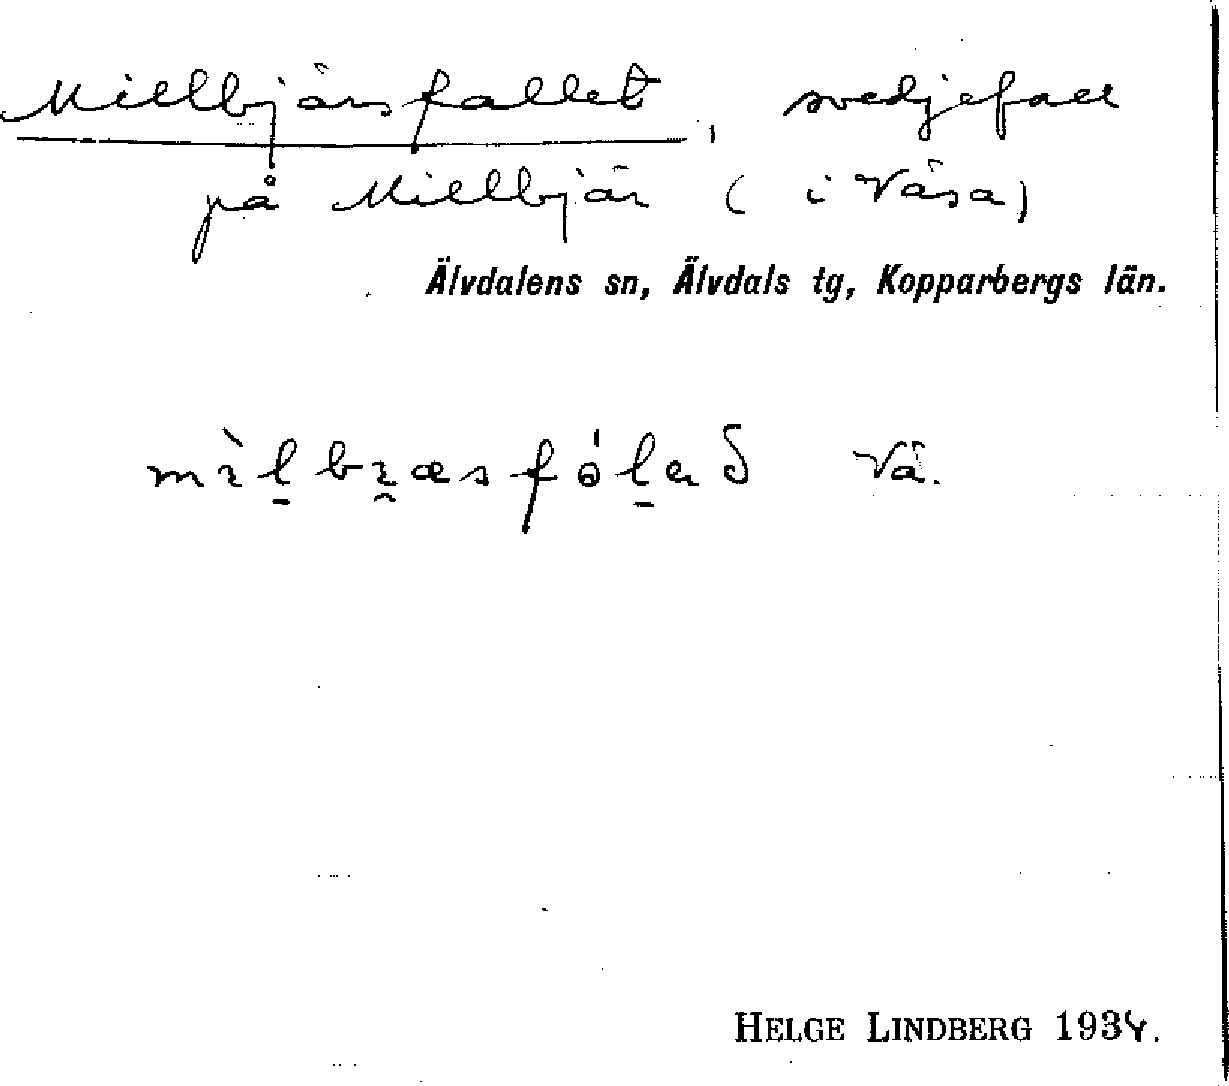 Millbjärsfallet, svedjefall
på Millbjär (i Väsa)
Älvdalens sn, Älvdals tg, Kopparbergs län.
Vä.
HELGE LINDBERG 1934.